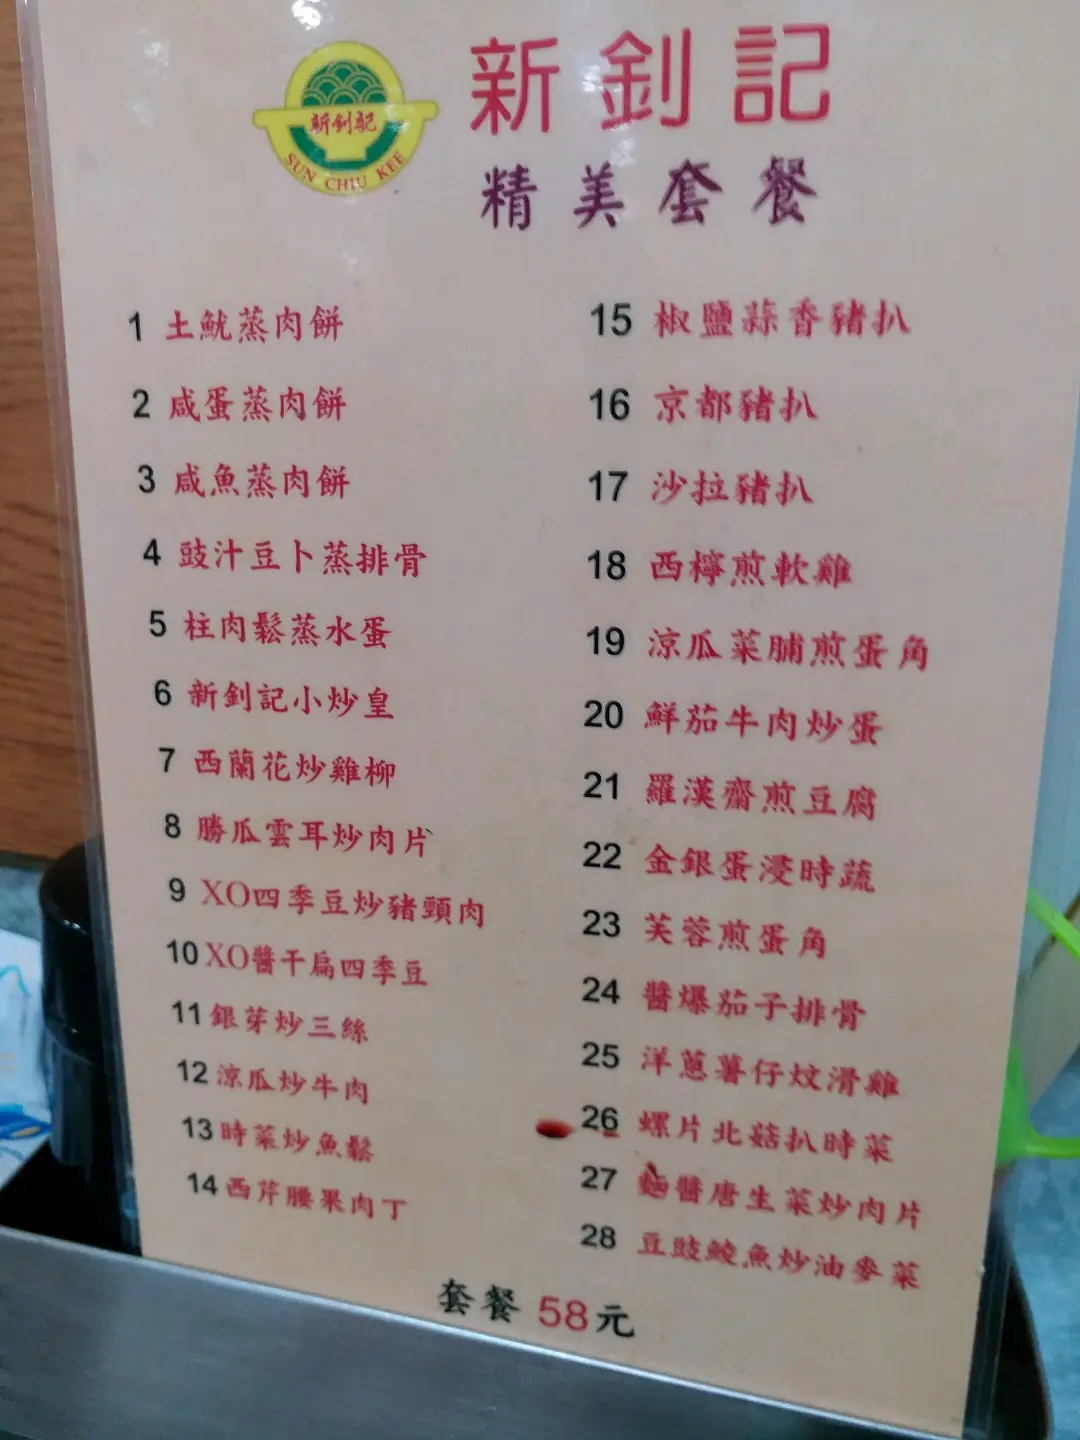 新釗記
SUN CHIU KEE
新釗記
精美套餐
1 土魷蒸肉餅
2 咸蛋蒸肉餅
3 咸魚蒸肉餅
4 豉汁豆卜蒸排骨
5 柱肉鬆蒸水蛋
6 新釗記小炒皇
7 西蘭花炒雞柳
8 勝瓜雲耳炒肉片
9 XO四季豆炒豬頸肉
10 XO醬干扁四季豆
11 銀芽炒三絲
12 涼瓜炒牛肉
13 時菜炒魚鬆
14 西芹腰果肉丁
15 椒鹽蒜香豬扒
16 京都豬扒
17 沙拉豬扒
18 西檸煎軟雞
19 涼瓜菜脯煎蛋角
20 鮮茄牛肉炒蛋
21 羅漢齋煎豆腐
22 金銀蛋浸時蔬
23 芙蓉煎蛋角
24 醬爆茄子排骨
25 洋蔥薯仔炆滑雞
26 螺片北菇扒時菜
27 麵醬唐生菜炒肉片
28 豆豉鯪魚炒油麥菜
套餐 58元